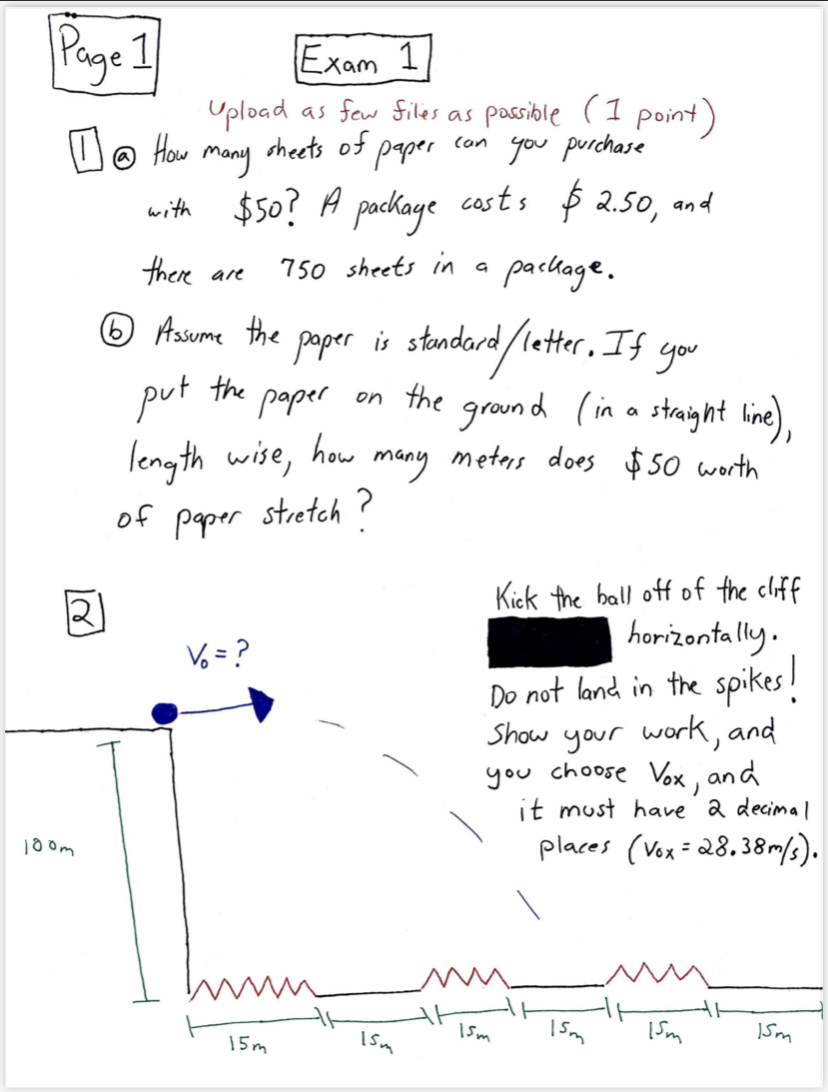 Page 1
Exam 1
Upload as few files as possible (1 point)
1 a How many sheets of paper can you purchase
with $50? A package costs $ 2.50, and
there are 750 sheets in a package.
b Assume the paper is standard/letter. If you
put the paper on the ground (in a straight line),
length wise, how many meters does $50 worth
of paper stretch?
2
Kick the ball off of the cliff
horizontally.
Do not land in the spikes!
Show your work, and
you choose Vox, and
it must have 2 decimal
places (Vox = 28.38m/s).
V₀ = ?
100m
15m
15m
15m
15m
15m
15m